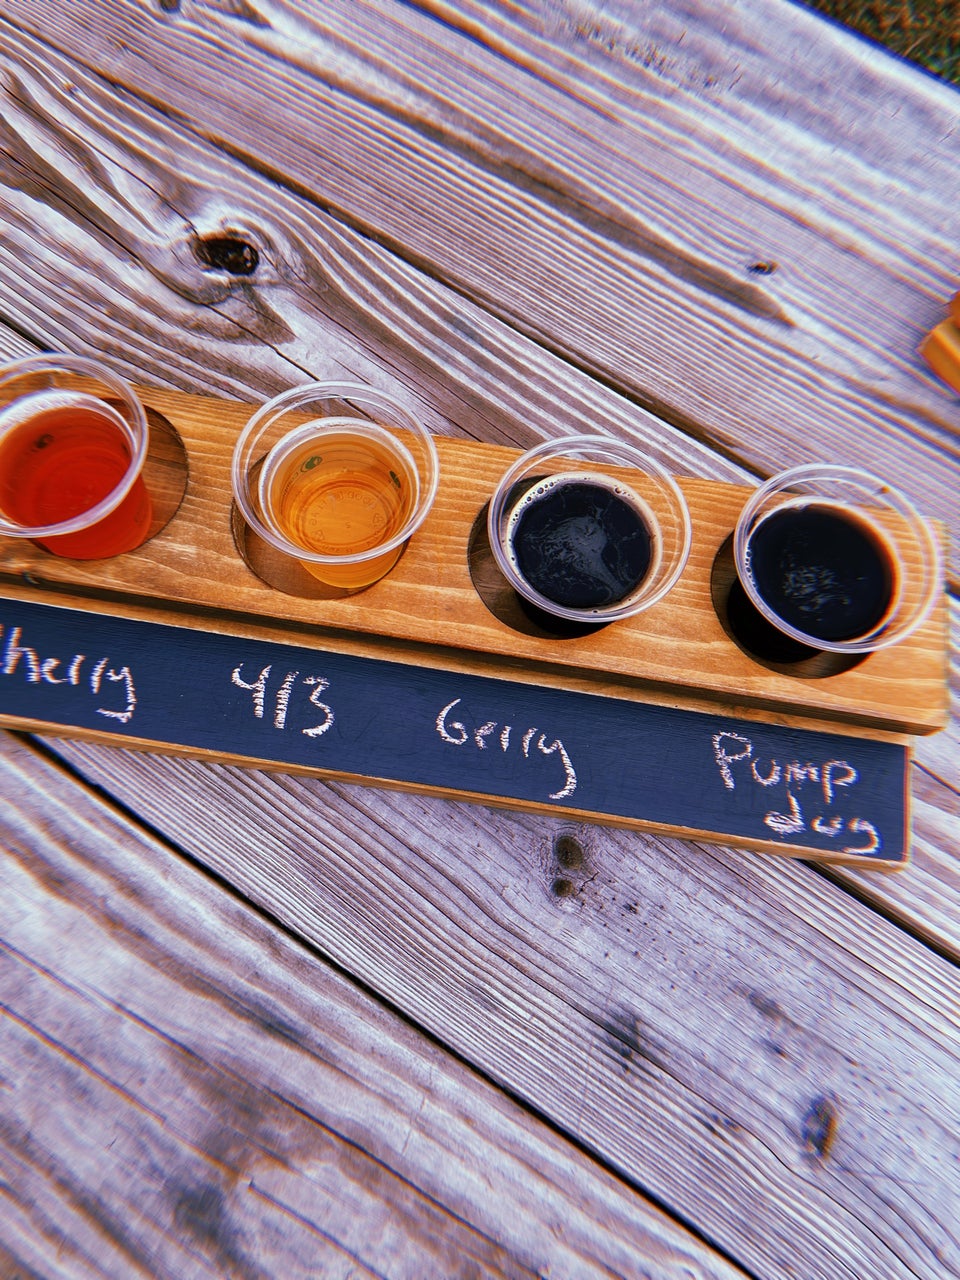 cherry
413
Gerry
Pump
dug